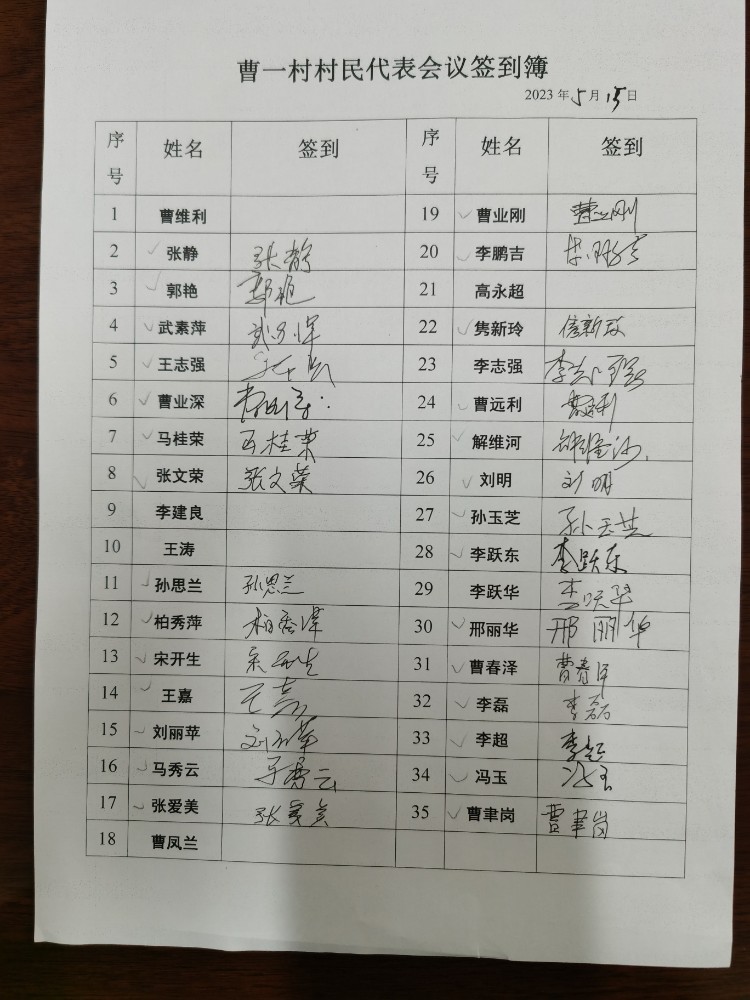 曹一村村民代表会议签到簿
2023年5月15日
序号 姓名 签到 序号 姓名 签到
1 曹维利 19 曹业刚 曹业刚
2 张静 张静 20 李鹏吉 李鹏吉
3 郭艳 郭艳 21 高永超
4 武素萍 武素萍 22 隽新玲
5 王志强 23 李志强 李志强
6 曹业深 24 曹远利 曹远利
7 马桂荣 马桂荣 25 解维河 解维河
8 张文荣 张文荣 26 刘明 刘明
9 李建良 27 孙玉芝 孙玉芝
10 王涛 28 李跃东 李跃东
11 孙思兰 孙思兰 29 李跃华 李跃华
12 柏秀萍 柏秀萍 30 邢丽华 邢丽华
13 宋开生 宋开生 31 曹春泽 曹春泽
14 王嘉 王嘉 32 李磊 李磊
15 刘丽苹 刘丽苹 33 李超 李超
16 马秀云 马秀云 34 冯玉 冯玉
17 张爱美 张爱美 35 曹聿岗 曹聿岗
18 曹凤兰